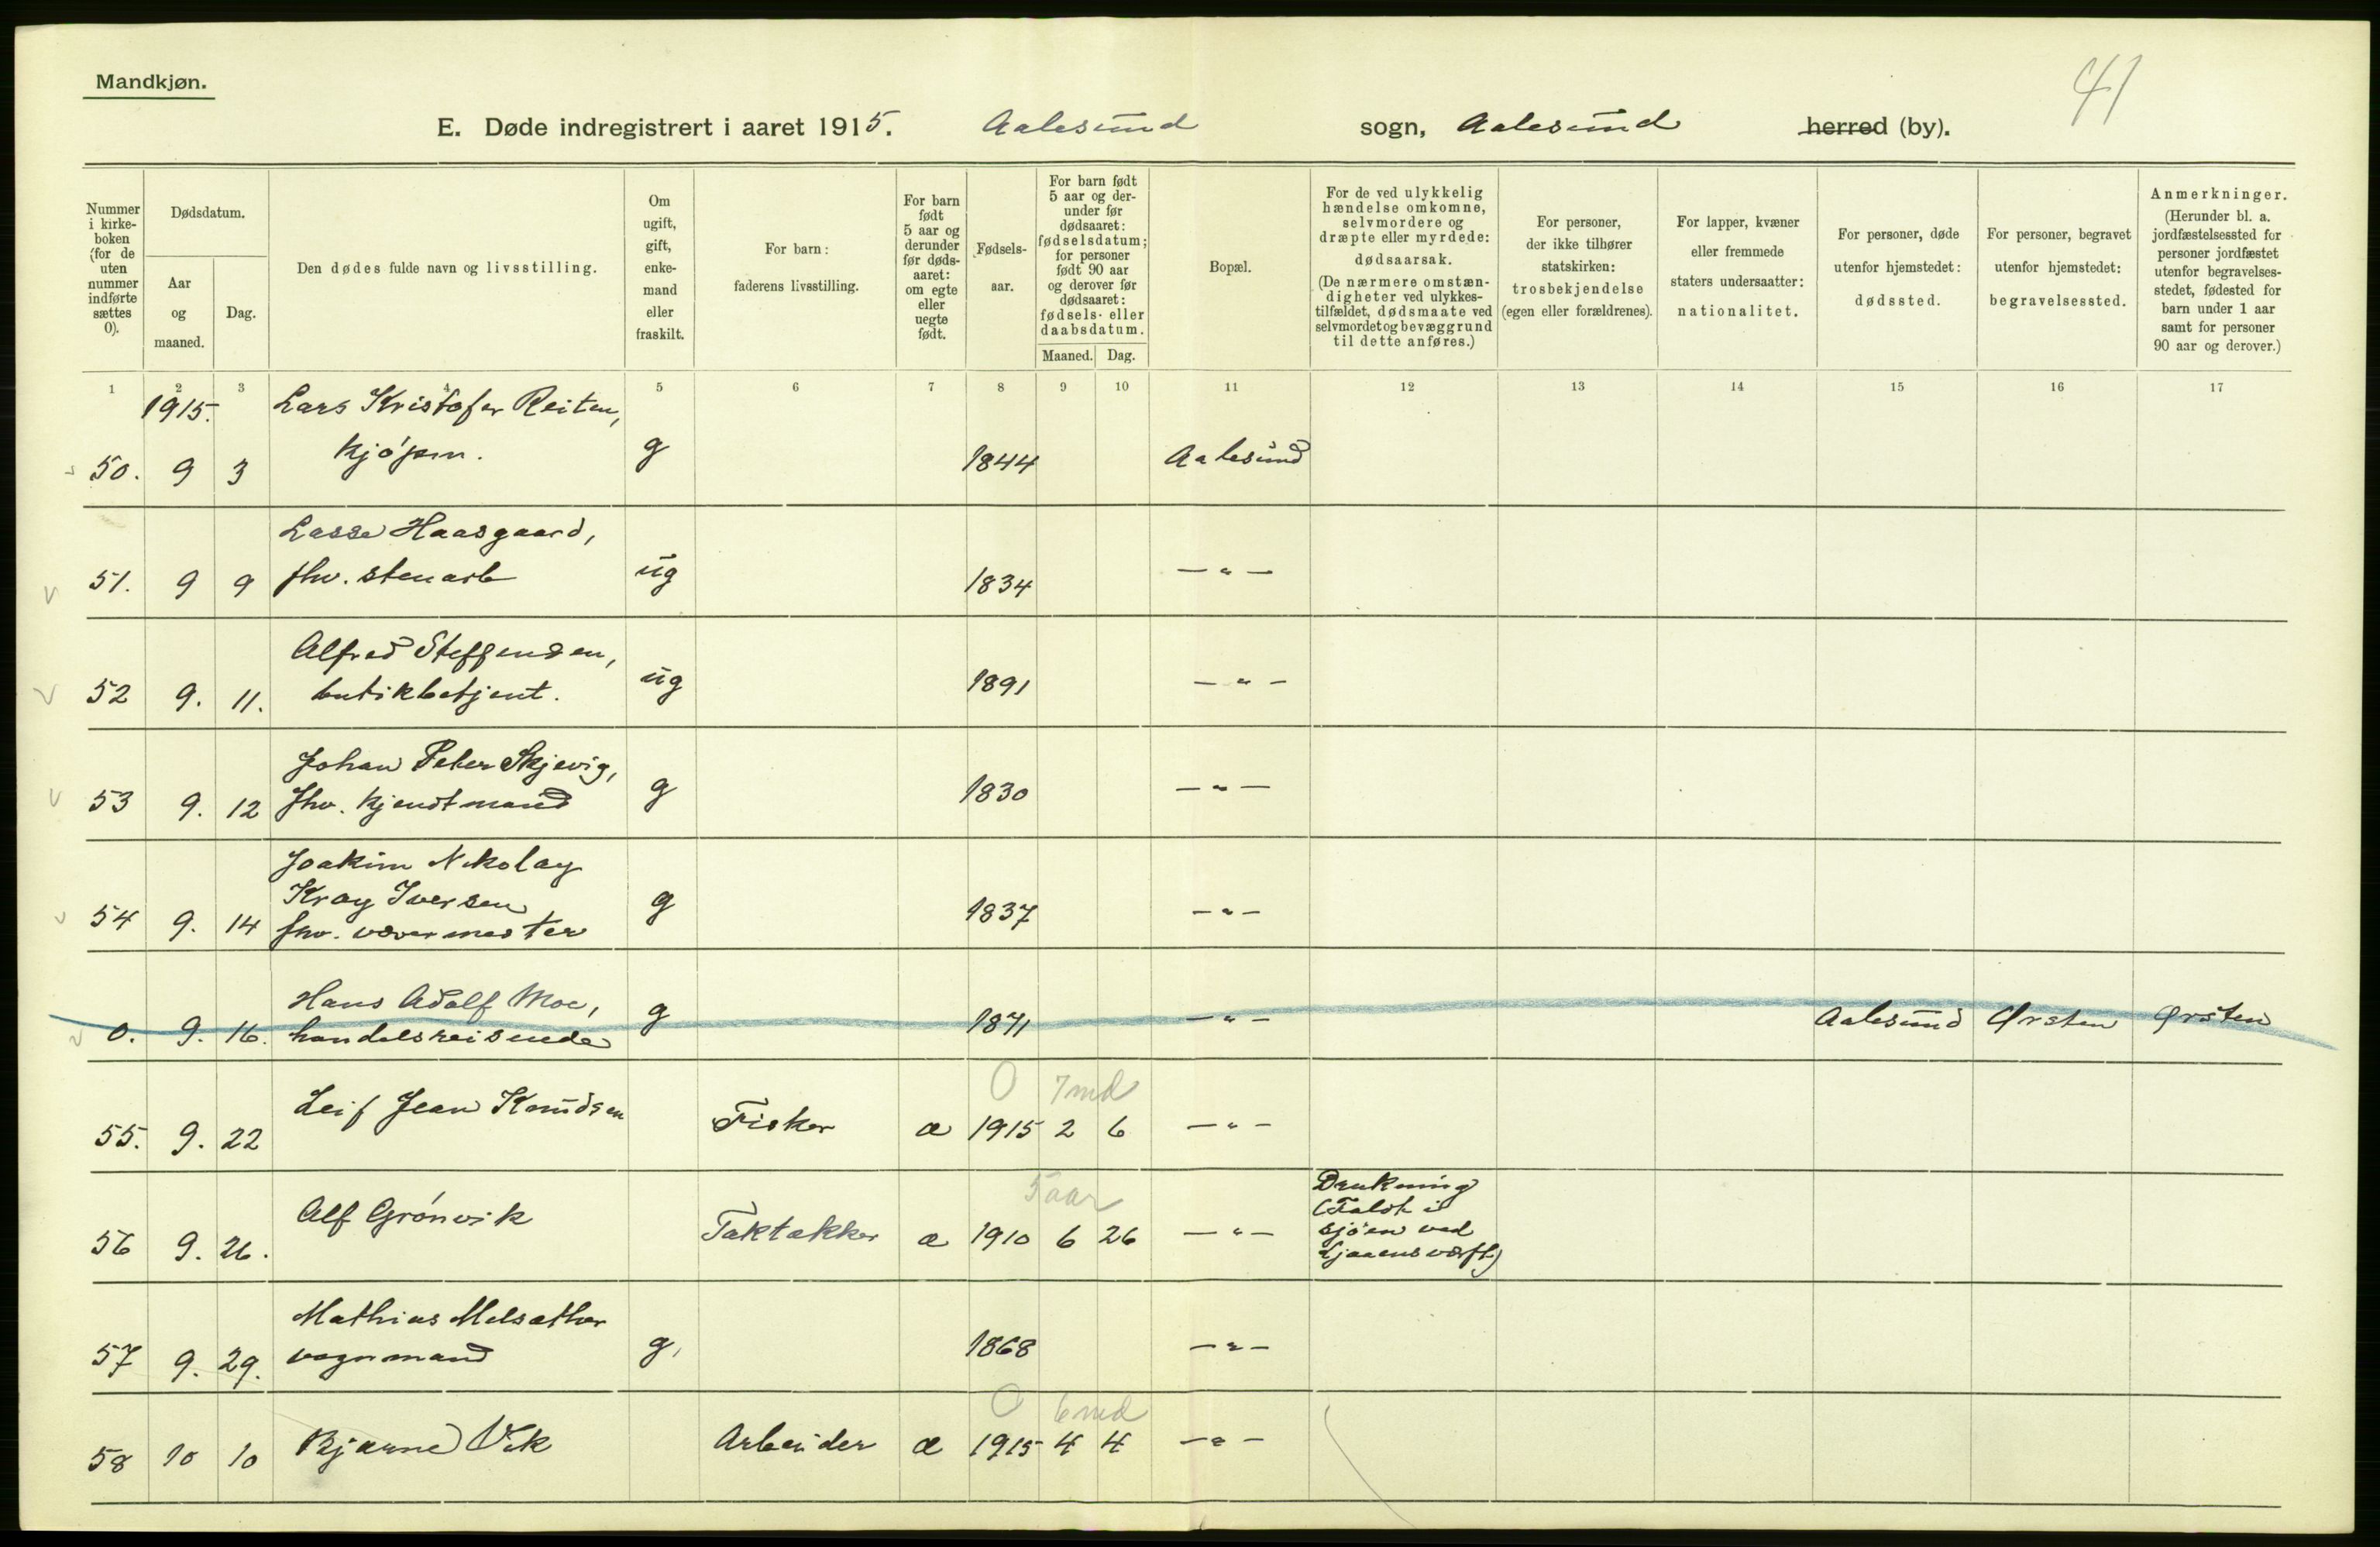 Mandkjøn.
41
E. Døde indregistrert i aaret 1915. Aalesund sogn, Aalesund herred (by).
Nummer i kirke-boken (for de uten nummer indførte sættes 0).
Dødsdatum.
Aar og maaned.
Dag.
Den dødes fulde navn og livsstilling.
Om ugift, gift, enke-mand eller fraskilt.
For barn: faderens livsstilling.
For barn født 5 aar og derunder før døds-aaret: om egte eller uegte født.
Fødsels-aar.
For barn født 5 aar og der-under før dødsaaret: fødselsdatum; for personer født 90 aar og derover før dødsaaret: fødsels- eller daabsdatum.
Maaned. Dag.
Bopæl.
For de ved ulykkelig hændelse omkomne, selvmordere og dræpte eller myrdede: dødsaarsak. (De nærmere omstæn-digheter ved ulykkes-tilfældet, dødsmaate ved selvmordet og bevæggrund til dette anføres.)
For personer, der ikke tilhører statskirken: trosbekjendelse (egen eller forældrenes).
For lapper, kvæner eller fremmede staters undersaatter: nationalitet.
For personer, døde utenfor hjemstedet: dødssted.
For personer, begravet utenfor hjemstedet: begravelsessted.
Anmerkninger. (Herunder bl. a. jordfæstelsessted for personer jordfæstet utenfor begravelses-stedet, fødested for barn under 1 aar samt for personer 90 aar og derover.)
1 2 3 4 5 6 7 8 9 10 11 12 13 14 15 16 17
1915. Lars Kristofer Reiten,
50. 9 3 kjøpm. g 1844 Aalesund
Lasse Haasgaard,
51. 9 9 fhv. stenarb ug 1834 — " —
Alfred Steffensen,
52 9. 11. butikbetjent. ug 1891 — " —
Johan Peter Skjevig,
53 9. 12 fhv. kjendtmand g 1830 — " —
Joakim Nikolay
Kray Iversen
54 9. 14 fhv. vævermester g 1837 — " —
Hans Adolf Moe,
0. 9. 16. handelsreisende g 1871 — " — Aalesund Ørsten Ørsten
0 7 md
55. 9. 22 Leif Jean Knudsen Fisker æ 1915 2 6 — " —
5 aar
56 9. 26. Alf Grönvik Taktækker æ 1910 6 26 — " — Drukning
(Faldt i
sjøen ved
Liaaens værft)
Mathias Melsæther
57 9. 29. vognmand g. 1868 — " —
0 6 md
58 10 10 Bjarne Vik Arbeider æ 1915 4 4 — " —